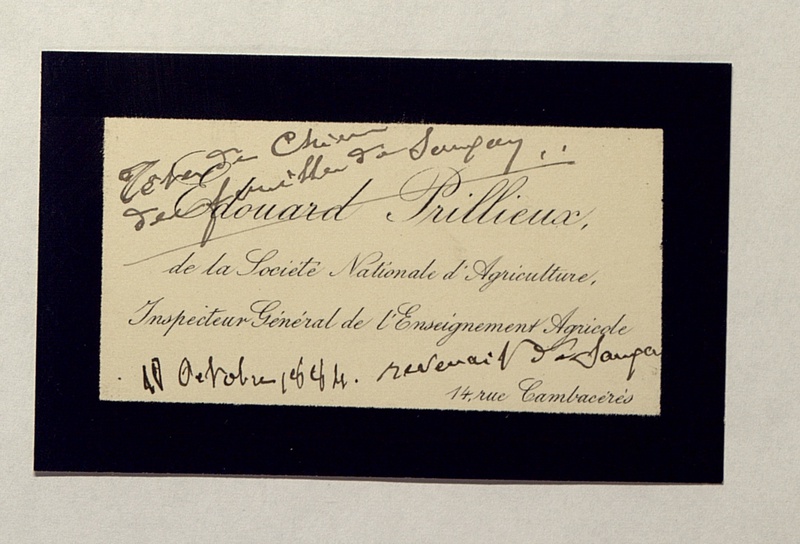 de Chien
de feuilles de Sangay..
Edouard Prillieux,
de la Société Nationale d'Agriculture,
Inspecteur Général de l'Enseignement Agricole
Octobre 1884. revenait de
14, rue Cambacérès